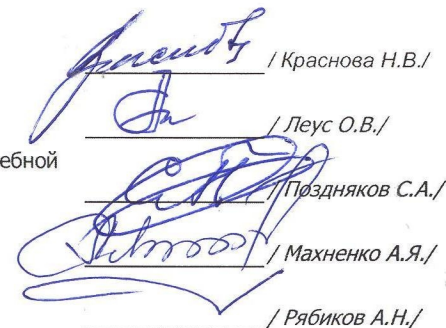 / Краснова Н.В./
/ Леус О.В./
ебной
/Поздняков С.А./
/ Махненко А.Я./
/ Рябиков А.Н./